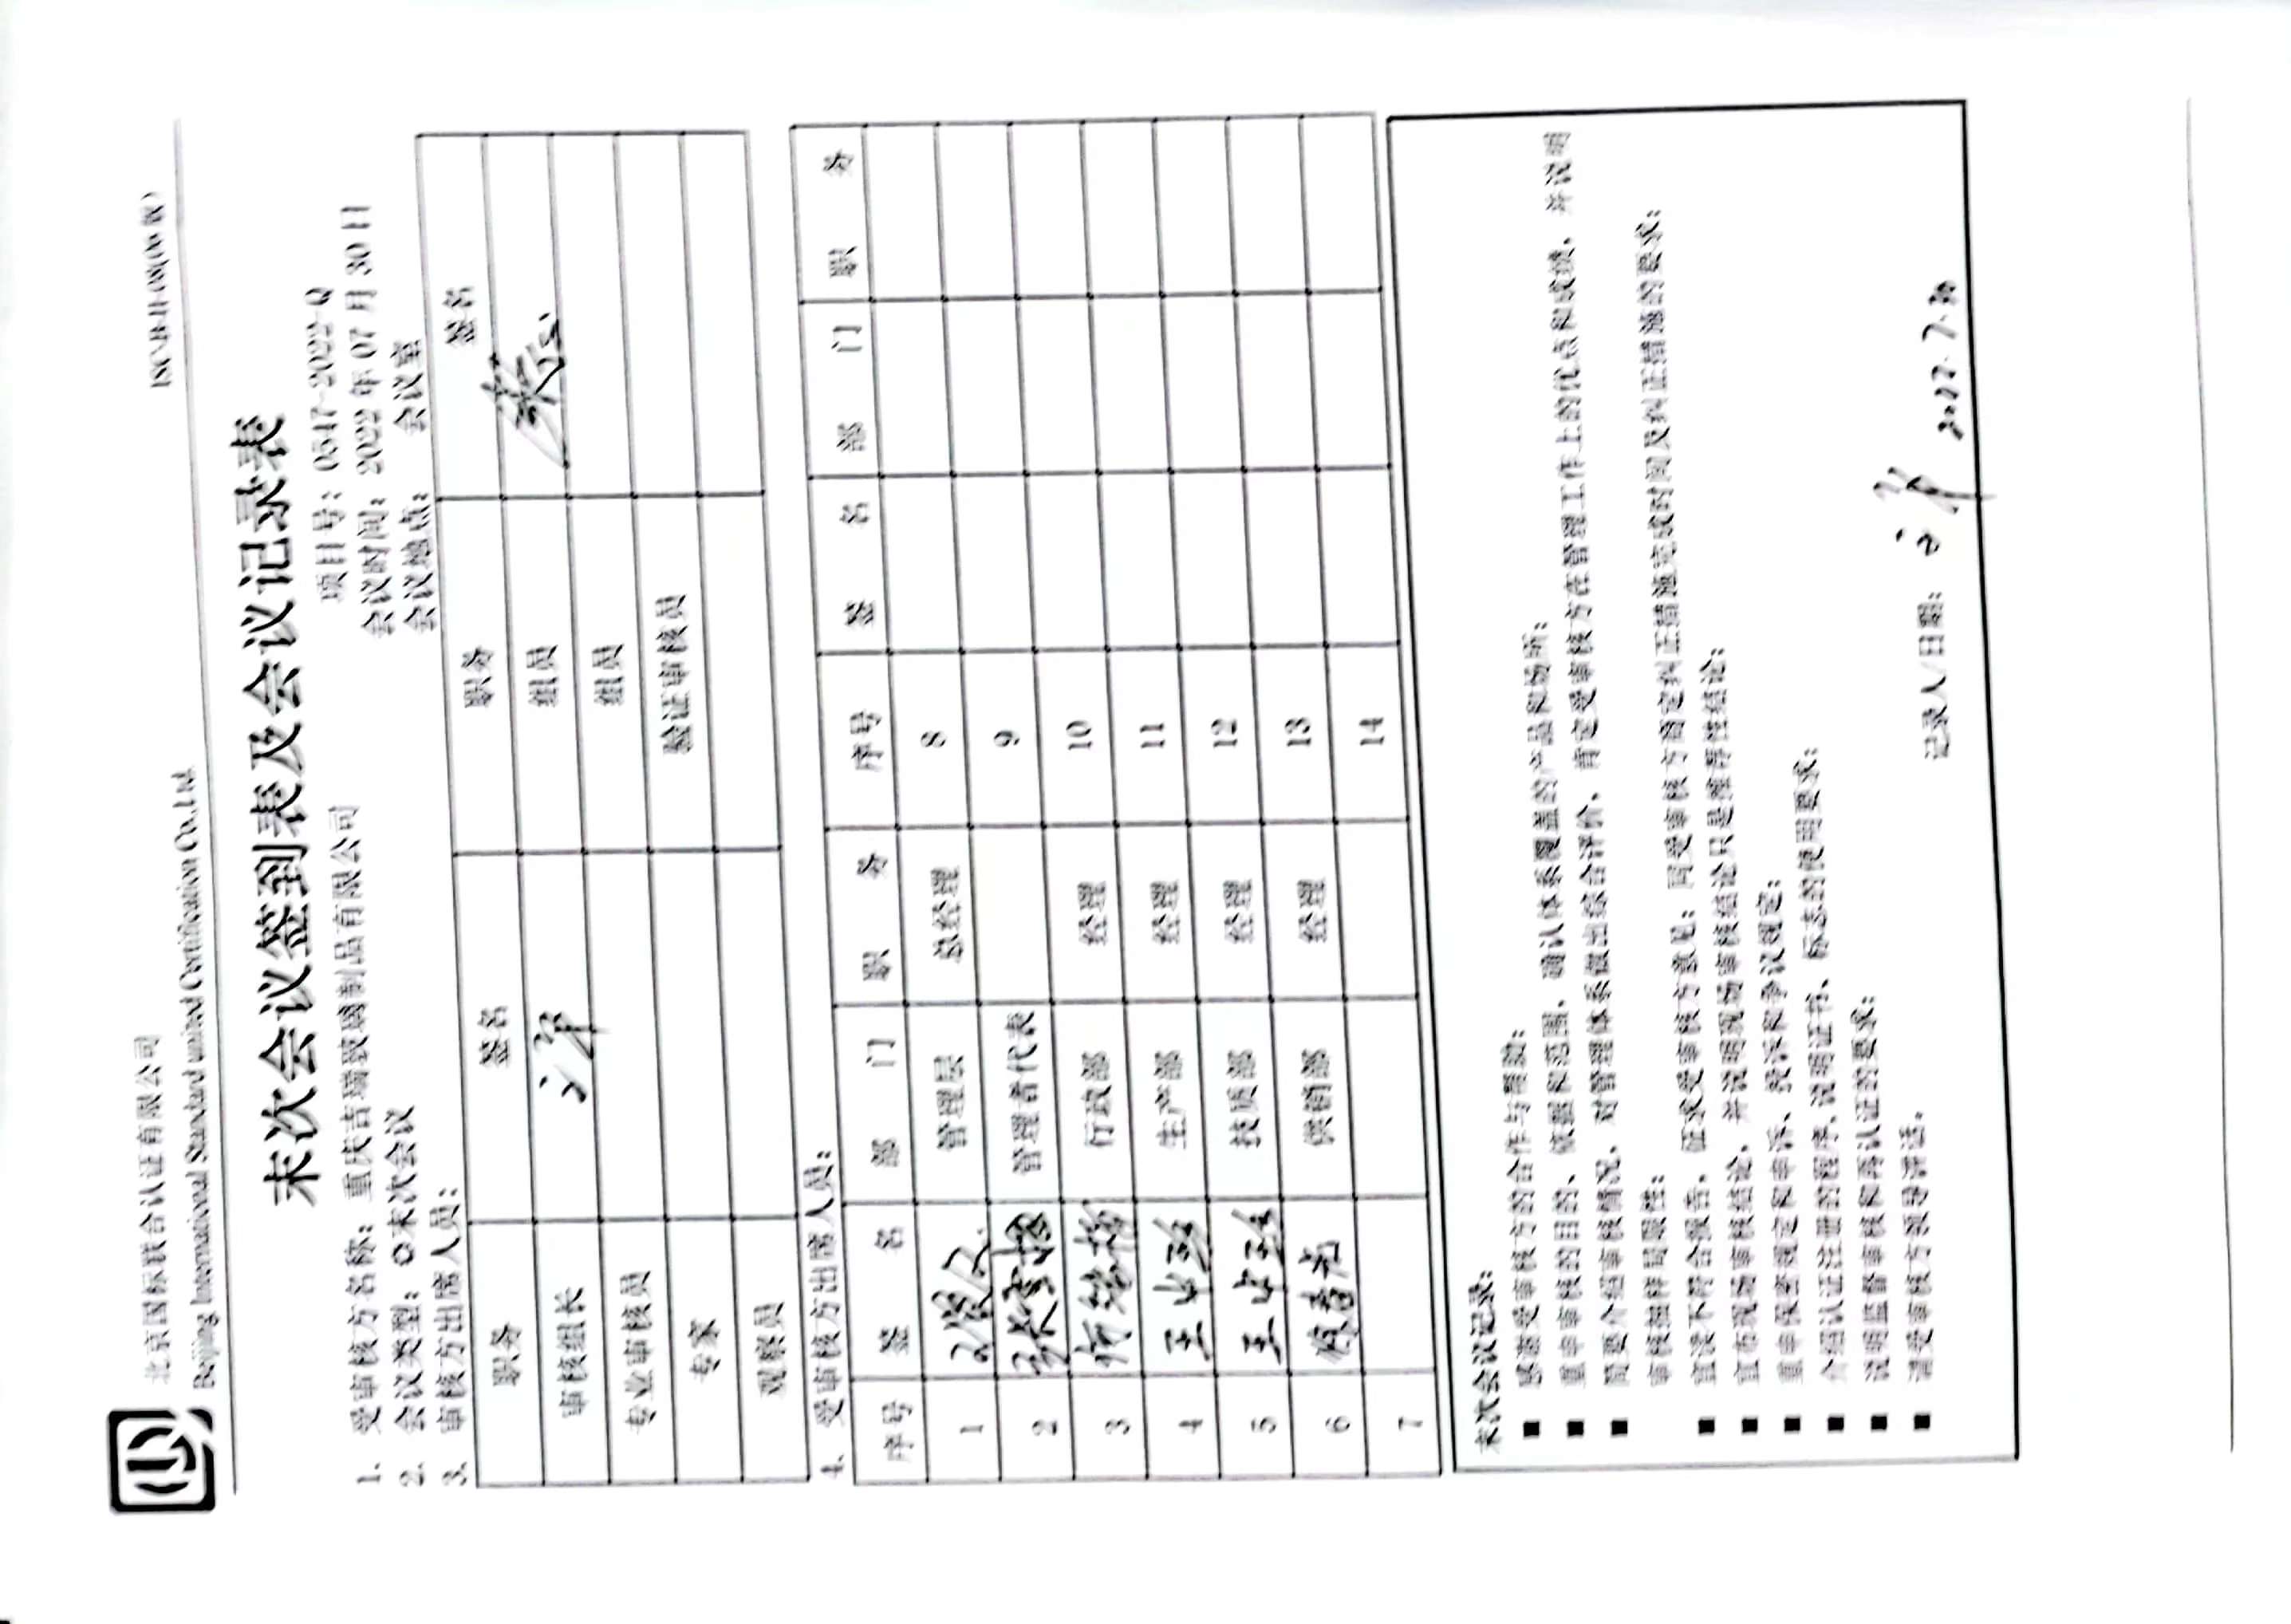 北京国标联合认证有限公司
Beijing International Standard united Certification Co.,Ltd.
末次会议签到表及会议记录表
项目号：0547-2022-Q
1. 受审核方名称：重庆吉瑞致璃制品有限公司 会议时间：2022 年 07 月 30 日
2. 会议类型：末次会议 会议地点： 会议室
3. 审核方出席人员：
职务 签名 职务 签名
审核组长 组员
专业审核员 组员
专家 验证审核员
观察员
4. 受审核方出席人员：
序号 签 名 部 门 职 务 序号 签 名 部 门 职 务
1 管理层 总经理 8
2 管理者代表 9
3 行政部 经理 10
4 生产部 经理 11
5 技质部 经理 12
6 供销部 经理 13
7 14
末次会议记录：
■ 感谢受审核方的合作与帮助；
■ 重申审核的目的、依据和范围，确认体系覆盖的产品和场所；
■ 简要介绍审核情况，对管理体系做出综合评价，肯定受审核方在管理工作上的优点和成绩，并说明
审核抽样局限性；
■ 宣读不符合报告，征求受审核方意见；同受审核方商定纠正措施完成时间及纠正措施的要求；
■ 宣布现场审核结论，并说明现场审核结论只是推荐性结论；
■ 重申保密规定和申诉、投诉和争议规定；
■ 介绍认证注册的程序，说明证书、标志的使用要求；
■ 说明监督审核和再认证的要求；
■ 请受审核方领导讲话。
记录人/日期： 2022.7.30